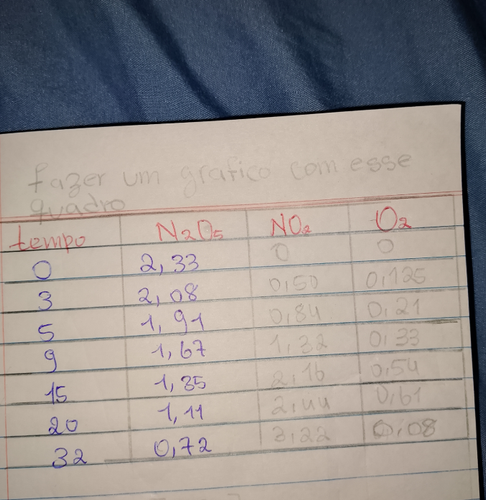 fazer um grafico com esse
quadro
tempo N₂O₅ NO₂ O₂
0 2,33 0 0
3 2,08 0,50 0,125
5 1,91 0,84 0,21
9 1,67 1,32 0,33
15 1,35 2,16 0,54
20 1,11 2,44 0,61
32 0,72 3,22 0,08